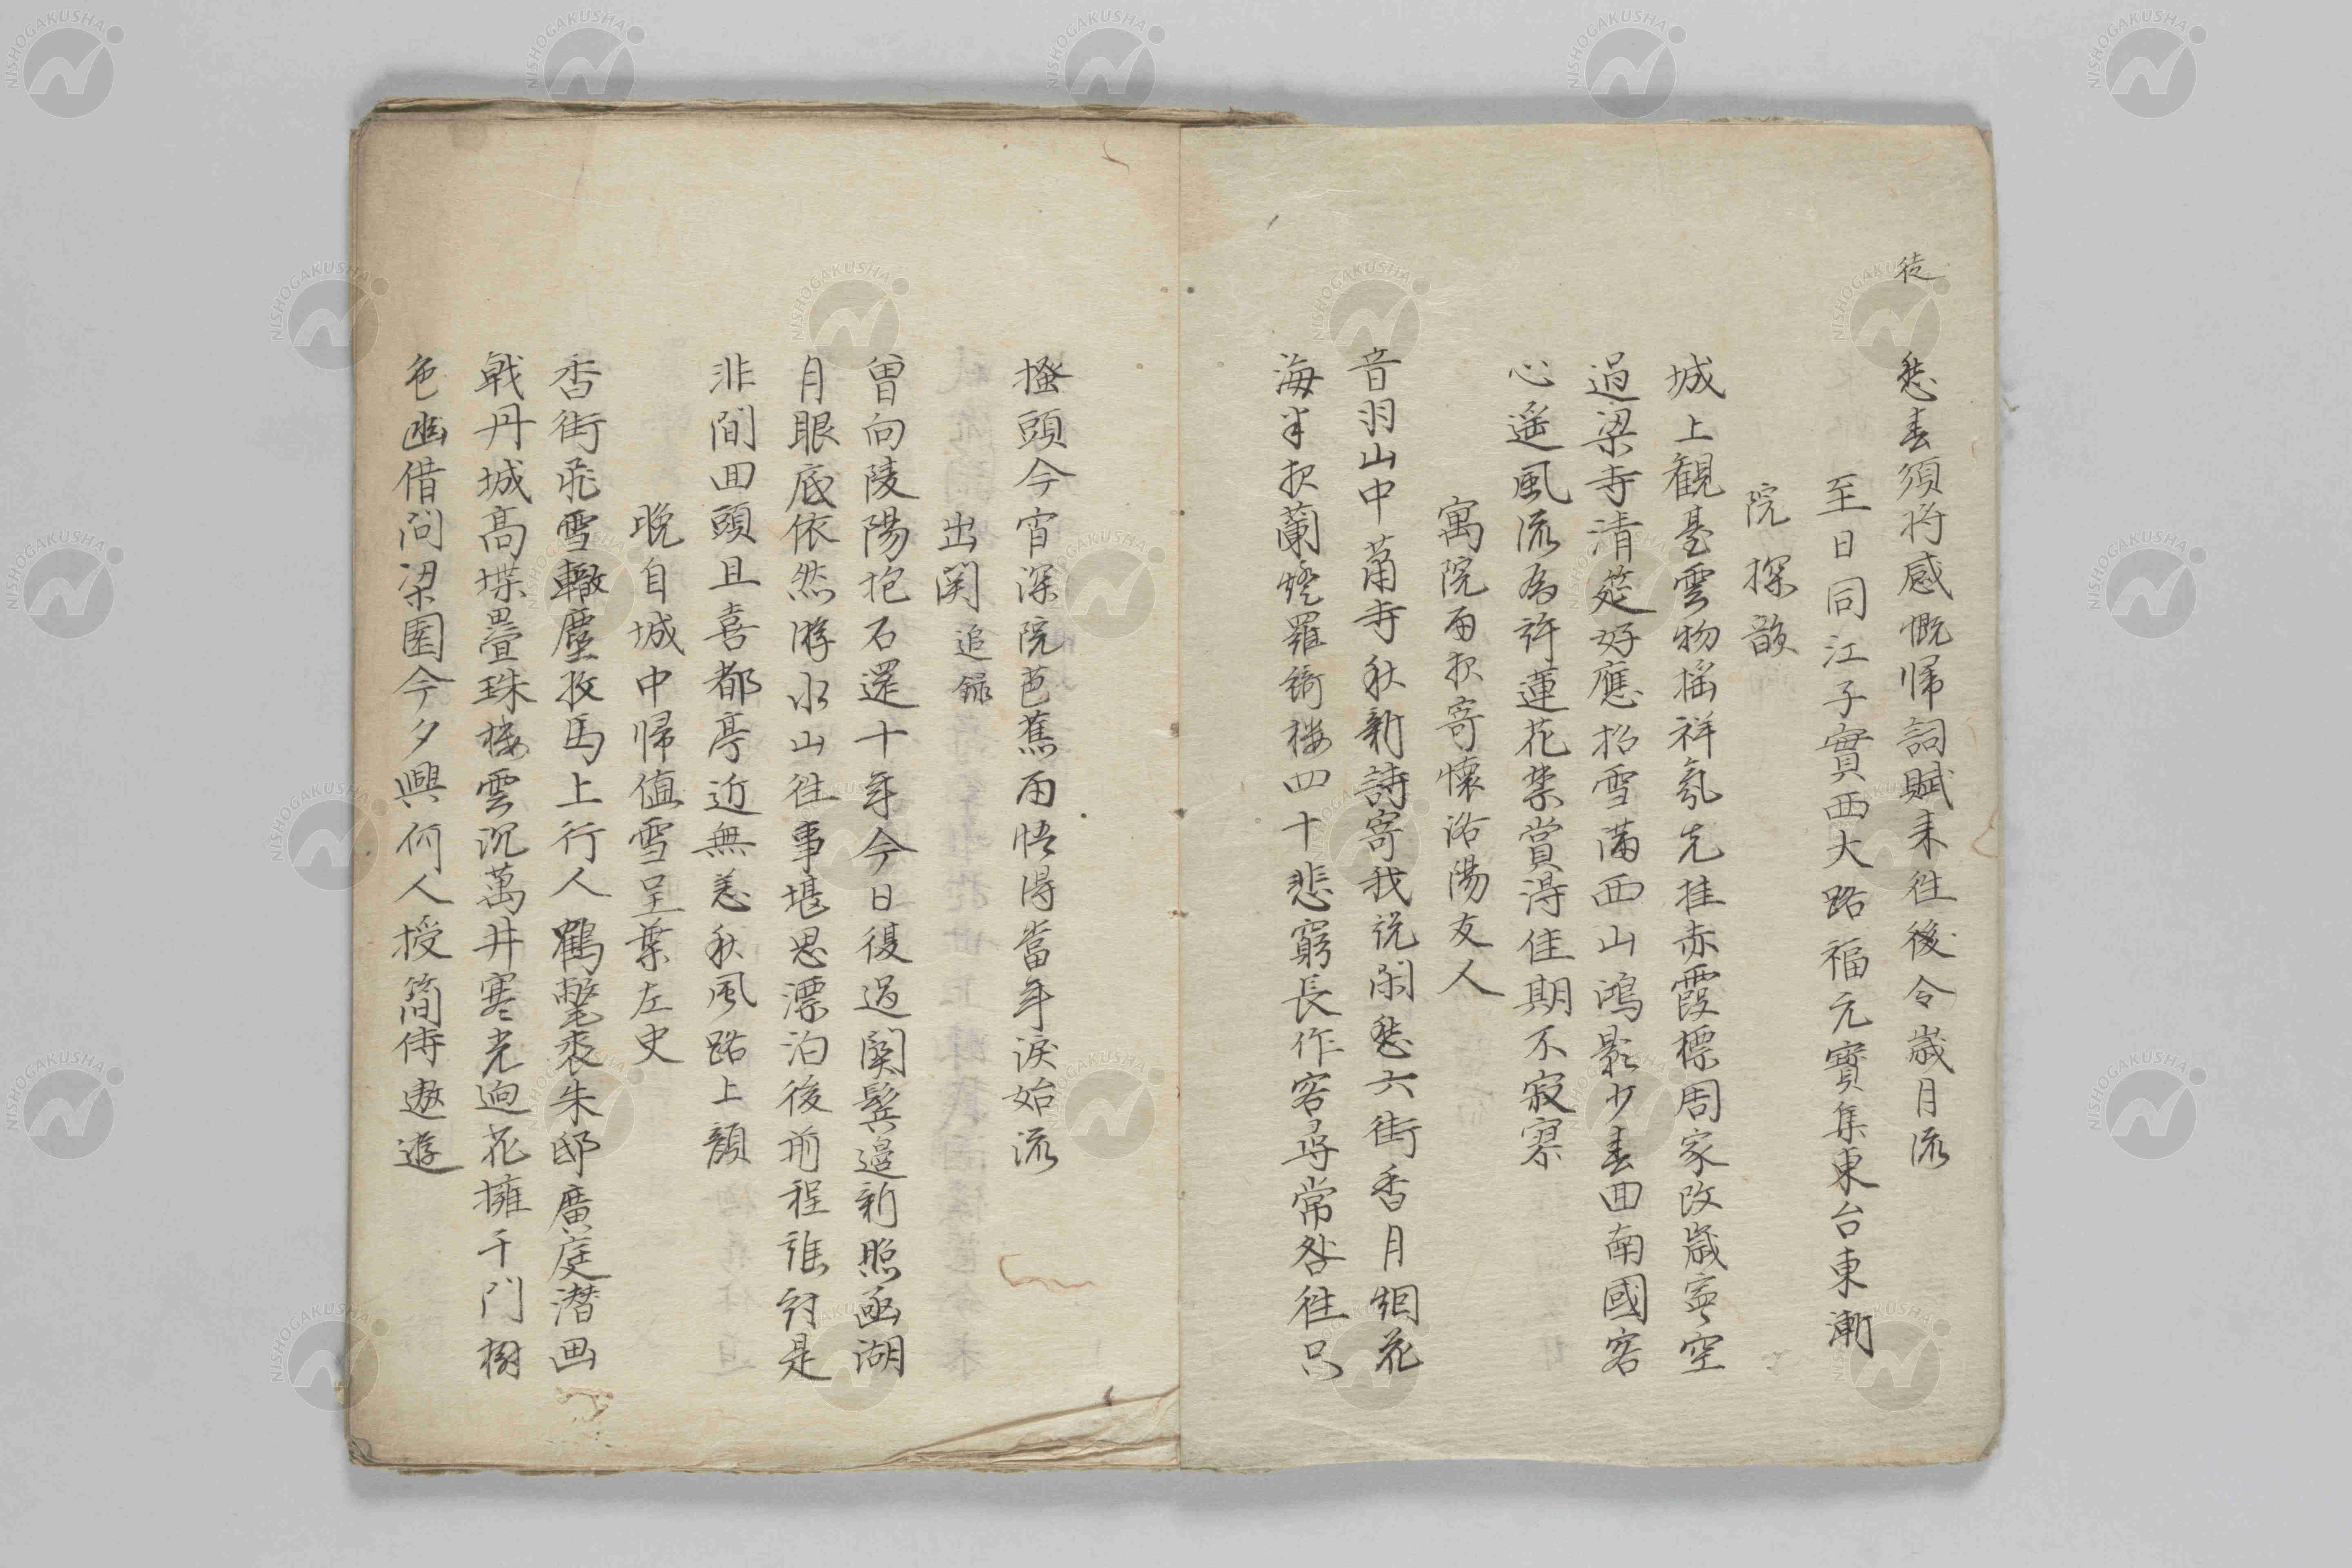 徒
愁春須将感慨帰詞賦未往後令歳月流
至日同江子實西大路福元寶集東台東漸
院探韻
城上観臺雲物揺祥氛先挂赤霞標周家改歳寒空
過梁寺清莚好應招雪満西山鴻影少春回南國客
心遥風流為許蓮花禁賞得佳期不寂寞
寓院雨夜寄懐洛陽友人
音羽山中蕭寺秋新詩寄我説閑愁六街香月細花
海半夜蘭燈羅綺楼四十悲窮長作客尋常咎往只
搔頭今宵深院芭蕉雨悟得當年涙始流
出関 追録
曽向陵陽抱石還十年今日復過関鬂邉新照函湖
月眼底依然游水山往事堪思漂泊後前程誰討是
非間回頭且喜都亭近無恙秋風路上顔
晩自城中帰値雪呈葉左史
香街飛雪轍塵收馬上行人鶴氅裘朱邸廣庭潜画
戟丹城高堞疊珠楼雲沉萬井寒光迥花擁千門樹
色幽借問梁園今夕興何人授簡侍遨遊